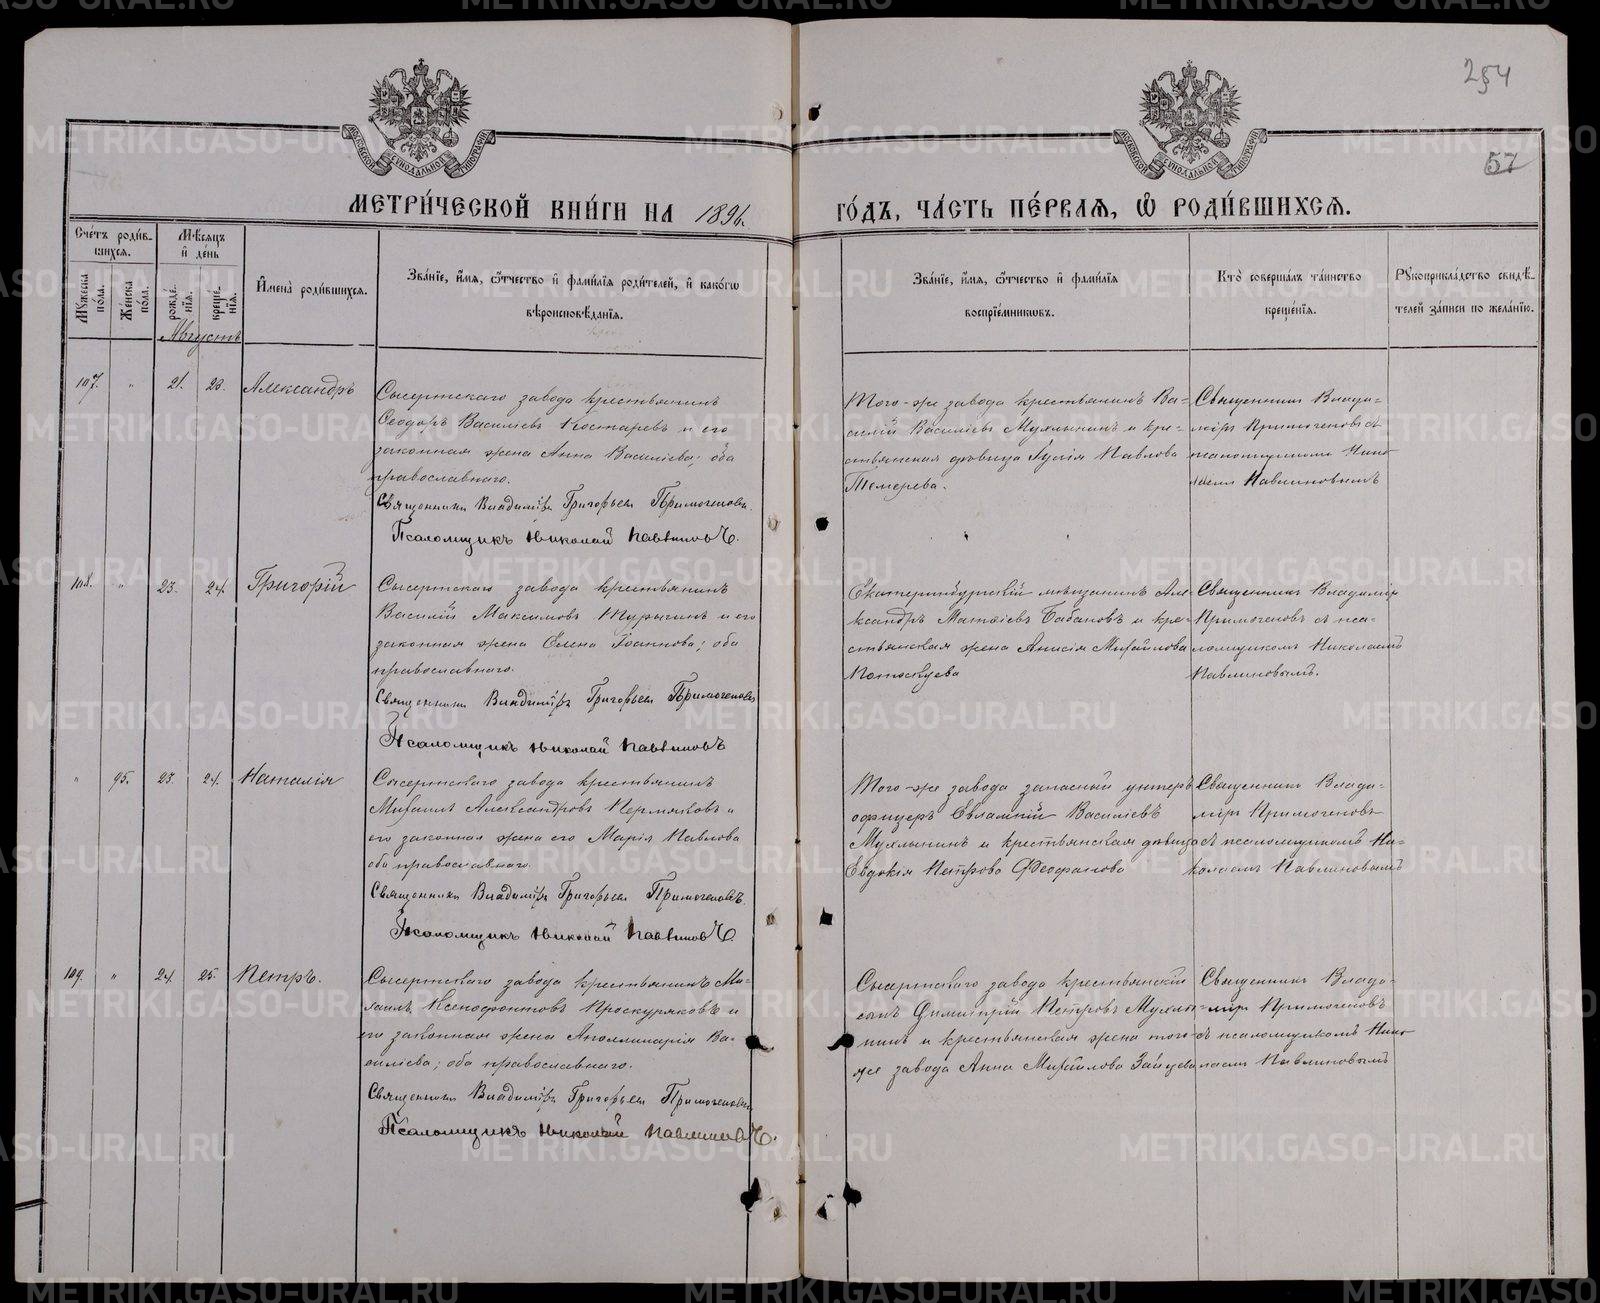 254
57
МЕТРИ́ЧЕСКОЙ КНИ́ГИ НА 1896.
ГО́ДЪ, ЧА́СТЬ ПЕ́РВАѦ, Ѡ҆ РОДИ́ВШИХСѦ.
Сче́тъ роди́в-
шихсѧ.
Мѣ́сѧцъ
и҆ де́нь
Мꙋ́жеска
по́ла.
Же́нска
по́ла.
рожде́-
нїѧ.
креще́-
нїѧ.
И҆мена̀ роди́вшихсѧ.
Зва́нїе, и҆́мѧ, ѻ҆́тчество и҆ фами́лїѧ роди́телей, и҆ како́гѡ
вѣроисповѣ́данїѧ.
Зва́нїе, и҆́мѧ, ѻ҆́тчество и҆ фами́лїѧ
воспрїе́мниковъ.
Кто̀ соверша́лъ та́инство
креще́нїѧ.
Рꙋкоприкла́дство свидѣ́-
телей за́писи по жела́нїю.
Августъ
107. " 21. 23. Александръ
Сысертскаго завода крестьянинъ
Ѳеодоръ Василіевъ Костаревъ и его
законная жена Анна Василіева; оба
православнаго.
Священникъ Владиміръ Григорьевъ Примогеновъ.
Псаломщикъ Николай Павлиновъ.
Того-же завода крестьянинъ Ва-
силій Василіевъ Мухлынинъ и кре-
стьянская дѣвица Павлова
Темерева.
Священникъ Влади-
міръ Примогеновъ съ
псаломщикомъ Нико-
лаемъ Павлиновымъ
108. " 23. 24. Григорій
Сысертскаго завода крестьянинъ
Василій Максимовъ Турыгинъ и его
законная жена Елена Іоаннова; оба
православнаго.
Священникъ Владиміръ Григорьевъ Примогеновъ
Псаломщикъ Николай Павлиновъ
Екатеринбургскій мѣщанинъ Але-
ксандръ Матѳіевъ Бабановъ и кре-
стьянская жена Анисія Михайлова
Потоскуева
Священникъ Владиміръ
Примогеновъ съ пса-
ломщикомъ Николаемъ
Павлиновымъ.
" 95. 23. 24. Наталія
Сысертскаго завода крестьянинъ
Михаилъ Александровъ Пермяковъ и
его законная жена его Марія Павлова
оба православнаго.
Священникъ Владиміръ Григорьевъ Примогеновъ.
Псаломщикъ Николай Павлиновъ.
Того-же завода запасный унтеръ
офицеръ Евлампій Василіевъ
Мухлынинъ и крестьянская дѣвица
Евдокія Петрова Ѳеофанова
Священникъ Влади-
міръ Примогеновъ
съ псаломщикомъ Ни-
колаемъ Павлиновымъ
109. " 24. 25. Петръ.
Сысертскаго завода крестьянинъ Ми-
хаилъ Ксенофонтовъ Проскуряковъ и
его законная жена Аполлинарія Ва-
силіева; оба православнаго.
Священникъ Владиміръ Григорьевъ Примогеновъ
Псаломщикъ Николай Павлиновъ.
Сысертскаго завода крестьянскій
сынъ Димитрій Петровъ Мухлы-
нинъ и крестьянская жена того-
же завода Анна Михайлова Зайцева
Священникъ Влади-
міръ Примогеновъ
съ псаломщикомъ Нико-
лаемъ Павлиновымъ
METRIKI.GASO-URAL.RU